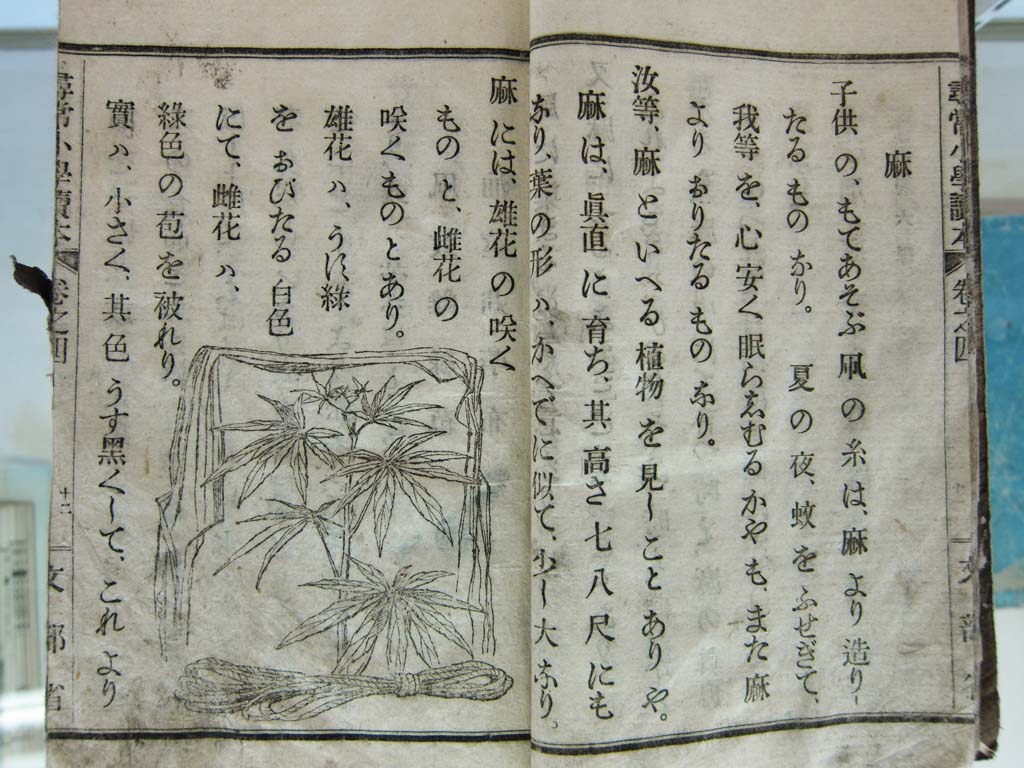 尋常小學讀本 卷之四
文部省
麻
子供の、もてあそぶ凧の糸は、麻より造り
たるものなり。 夏の夜、蚊をふせぎて、
我等を、心安く眠らゑむるかやも、また麻
よりおりたるものなり。
汝等、麻といへる植物を見しことありや。
麻は、眞直に育ち、其高さ七八尺にも
なり、葉の形ハ、かへでに似て、少し大なり。
麻には、雄花の咲く
ものと、雌花の
咲くものとあり。
雄花ハ、うす緑
をおびたる白色
にて、雌花ハ、
綠色の苞を被れり。
實ハ、小さく、其色うす黑くして、これより
尋常小學讀本 卷之四
十二
文部省